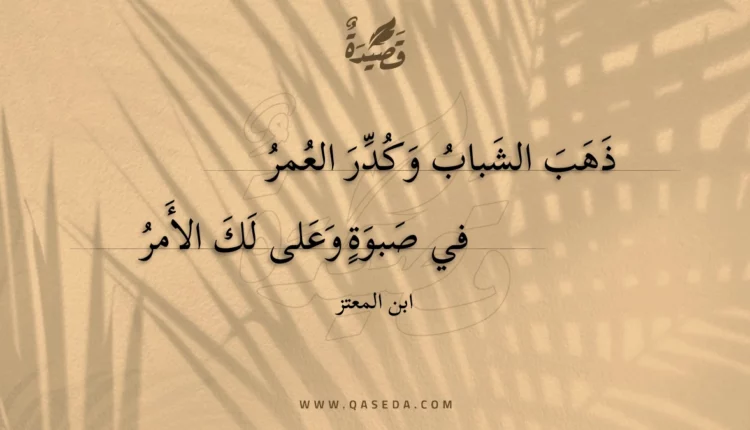 قَصِيدَةٌ
ذَهَبَ الشَبابُ وَكُدِّرَ العُمرُ
في صَبوَةٍ وَعَلى لَكَ الأَمرُ
ابن المعتز
WWW.QASEDA.COM